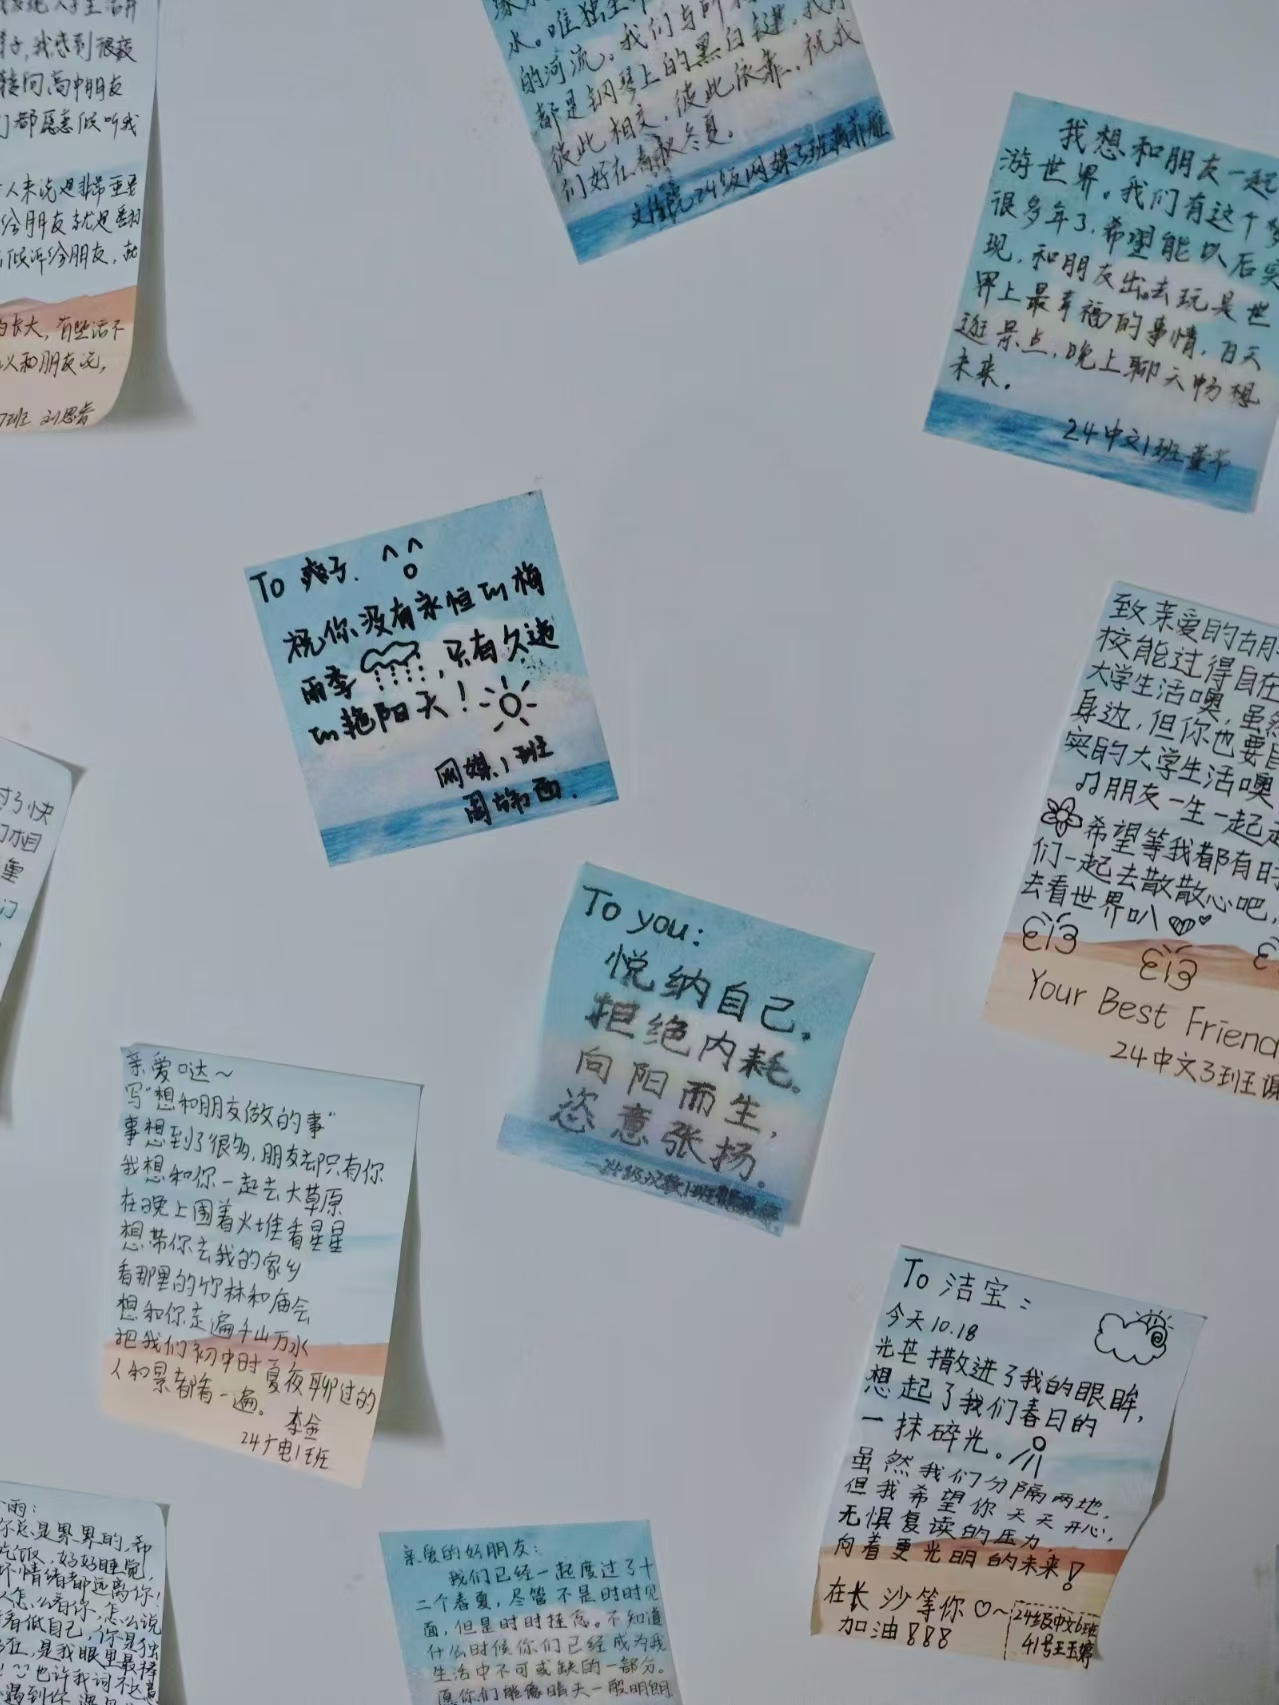 子，我感到很疲
转向高中朋友
们都愿意倾听我
人来说是非常重要
给朋友就是翻
倾诉给朋友，就
的长大，有些话不
以和朋友说，
7班 刘思睿
水。唯独生
的河流。我们与所
都是钢琴上的黑白键，我们
彼此相交，彼此依靠，祝我
们好在春秋冬夏。
文传院24级网媒3班
我想和朋友一起
游世界。我们有这个梦
很多年了，希望能以后实
现，和朋友出去玩是世
界上最幸福的事情，白天
逛景点，晚上聊天畅想
未来。
24中文1班董节
To 爽子.
祝你没有永恒的梅
雨季，只有久违
的艳阳天！
网媒1班
周
致亲爱的胡
校能过得自在
大学生活噢，虽然
身边，但你也要自
实的大学生活噢
♫朋友一生一起走
希望等我都有时
们一起去散散心吧，
去看世界叭
Your Best Friend
24中文3班王
过了快
们相
重
们
To you:
悦纳自己。
拒绝内耗。
向阳而生，
恣意张扬。
24级汉教1班
亲爱哒～
写“想和朋友做的事”
事想到了很多，朋友却只有你
我想和你一起去大草原
在晚上围着火堆看星星
想带你去我的家乡
看那里的竹林和庙会
想和你走遍千山万水
把我们初中时夏夜聊过的
人和景都看一遍。
李金
24广电1班
To 洁宝：
今天10.18
光芒撒进了我的眼眸，
想起了我们春日的
一抹碎光。
虽然我们分隔两地，
但我希望你天天开心，
无惧复读的压力，
向着更光明的未来！
在长沙等你♡～
加油888
24级中文6班
41号王玉婷
雨：
你总是累累的，希
吃饭，好好睡觉，
坏情绪都远离你！
人怎么看你，怎么说
看低自己，你是独
在，是我眼里最棒
！也许我词不达意
遇到你
亲爱的好朋友：
我们已经一起度过了十
二个春夏，尽管不是时时见
面，但是时时挂念。不知道
什么时候你们已经成为我
生活中不可或缺的一部分。
愿你们能像晴天一般明朗